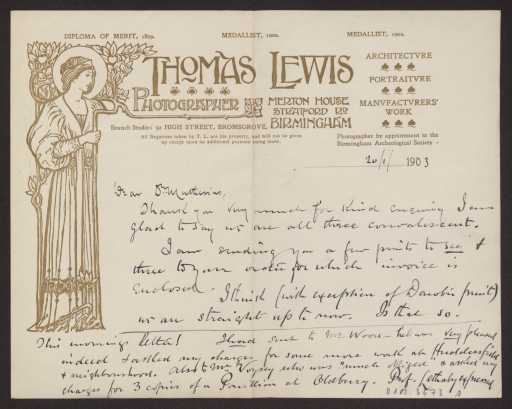 DIPLOMA OF MERIT, 1899. MEDALLIST, 1900. MEDALLIST, 1901.
THOMAS LEWIS
PHOTOGRAPHER
MERTON HOUSE
STRATFORD RD
BIRMINGHAM
ARCHITECTVRE
PORTRAITVRE
MANVFACTVRERS'
WORK
Branch Studio: 92 HIGH STREET, BROMSGROVE.
All Negatives taken by T. L. are his property, and will not be given
up except upon an additional payment being made.
Photographer by appointment to the
Birmingham Archæological Society
20/1/ 1903
Dear Dr
Thank you very much for kind enquiry I am
glad to say we are all three convalescent.
I am sending you a few prints to see &
three to your order for which invoice is
enclosed.
I think (with exception of print)
we are straight up to now. Is this so.
This mornings letter! I sent to Mr Wood he was very pleased
indeed & asked my charges for some more work at Huddersfield
& neighbourhood. Also to Mr Voysey who was "much obliged" & asked my
charges for 3 copies of a Pavillion at Oldbury. Prof. Lethaby